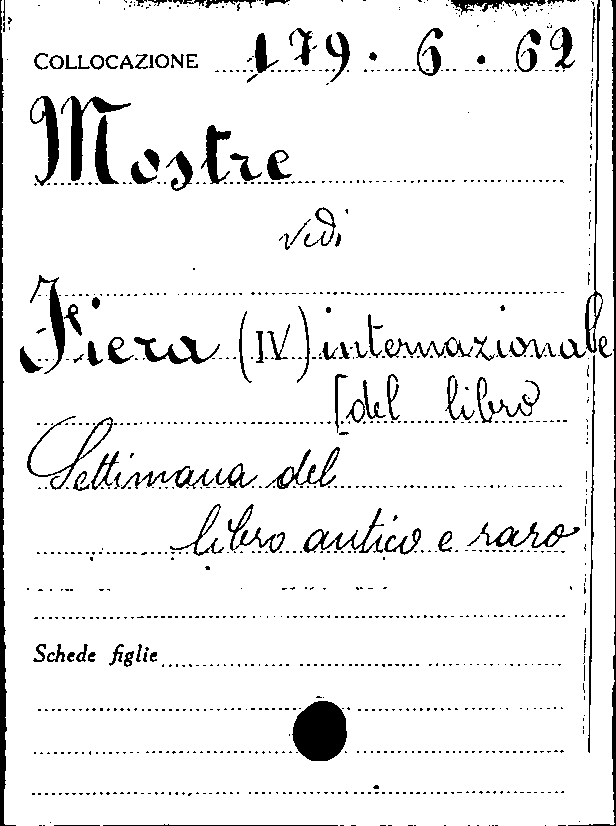 COLLOCAZIONE 179. 6. 62
Mostre
vedi
Fiera (IV) internazionale
[del libro
Settimana del
libro antico e raro
Schede figlie